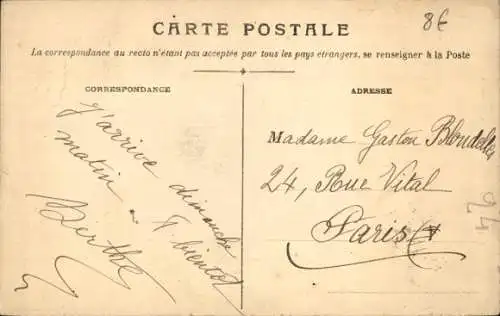 CARTE POSTALE
8€
La correspondance au recto n'étant pas acceptée par tous les pays étrangers, se renseigner à la Poste
CORRESPONDANCE
J'arrive dimanche
matin - à bientôt
Berthe
ADRESSE
Madame Gaston
24, Rue Vital
Paris
24